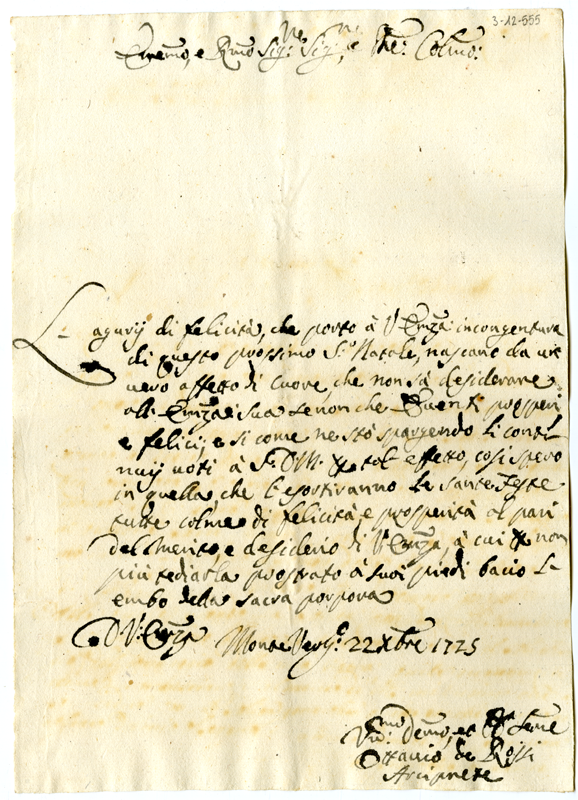 3-12-555
Emmo, e Rmo Sigre Sigre, e Pne: Colmo:
L-agurij di felicità, che porto à V. Emza in congentura
di questo prossimo S.o Natale, nascano da un
uero affetto di cuore, che non sà desiderare
all' Emza sua se non che Euenti prosperi
e felici; e si come ne stò spargendo li conti-
nuij uoti à S. D. M. per tal effetto, così spero
in quella, che l'esortiranno le sante feste
tutte colme di felicità, e prosperità al pari
del merito, e desiderio di V. Emza, à cui per non
più tediarla prostrato à suoi piedi bacio L-
embo della sacra porpora
D V. Emza Monte Verg.e 22 Xbre 1725
Vmo: Deumo, et Serre
Ottauio de Rossi
Arciprete